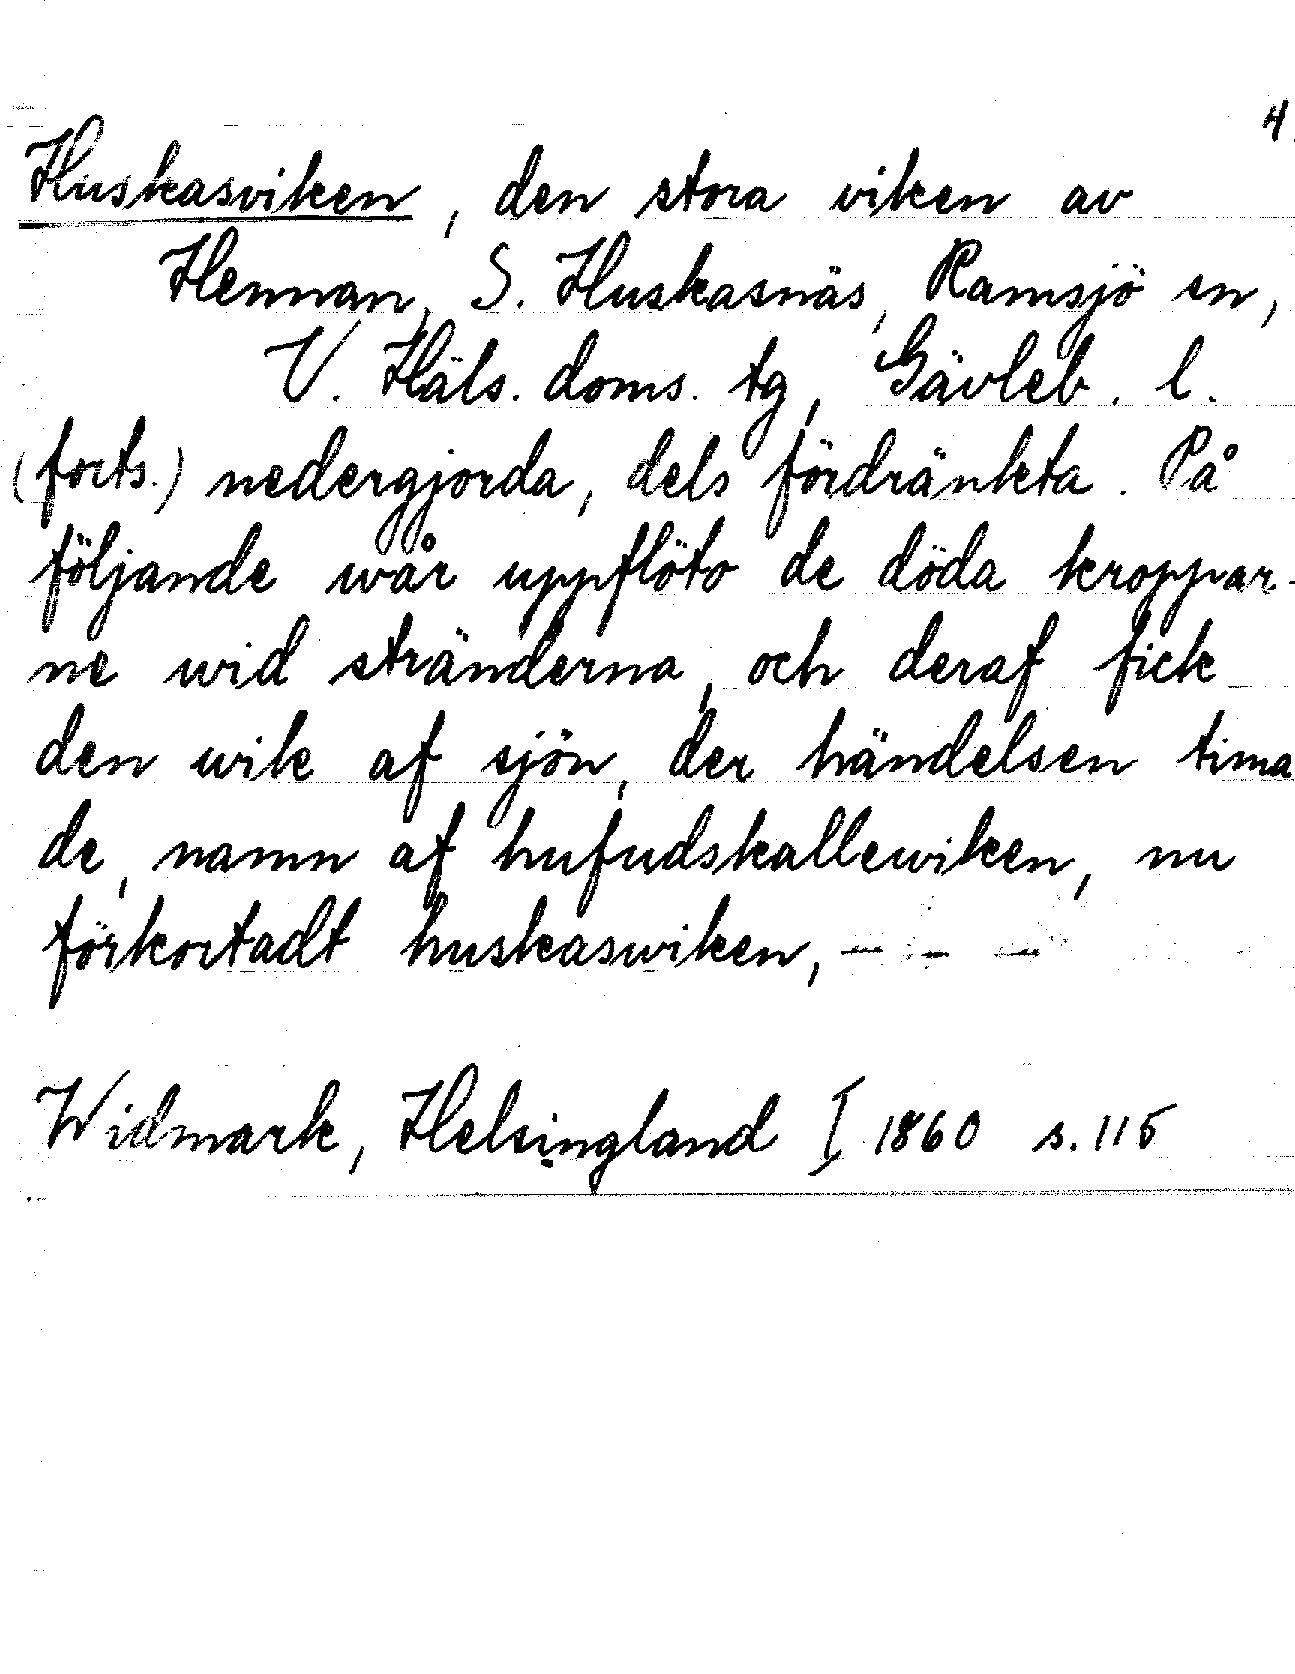 4.
Huskasviken, den stora viken av
Hennan, S. Huskasnäs, Ramsjö sn,
V. Häls. doms. tg, Gävleb. l.
(forts.) nedergjorda, dels fördränkta. På
följande wår uppflöto de döda kroppar-
ne wid stränderna, och deraf fick
den wik af sjön, der händelsen tima
de, namn af hufudskallewiken, nu
förkortadt huskaswiken, — - —
Widmark, Helsingland I 1860 s. 115